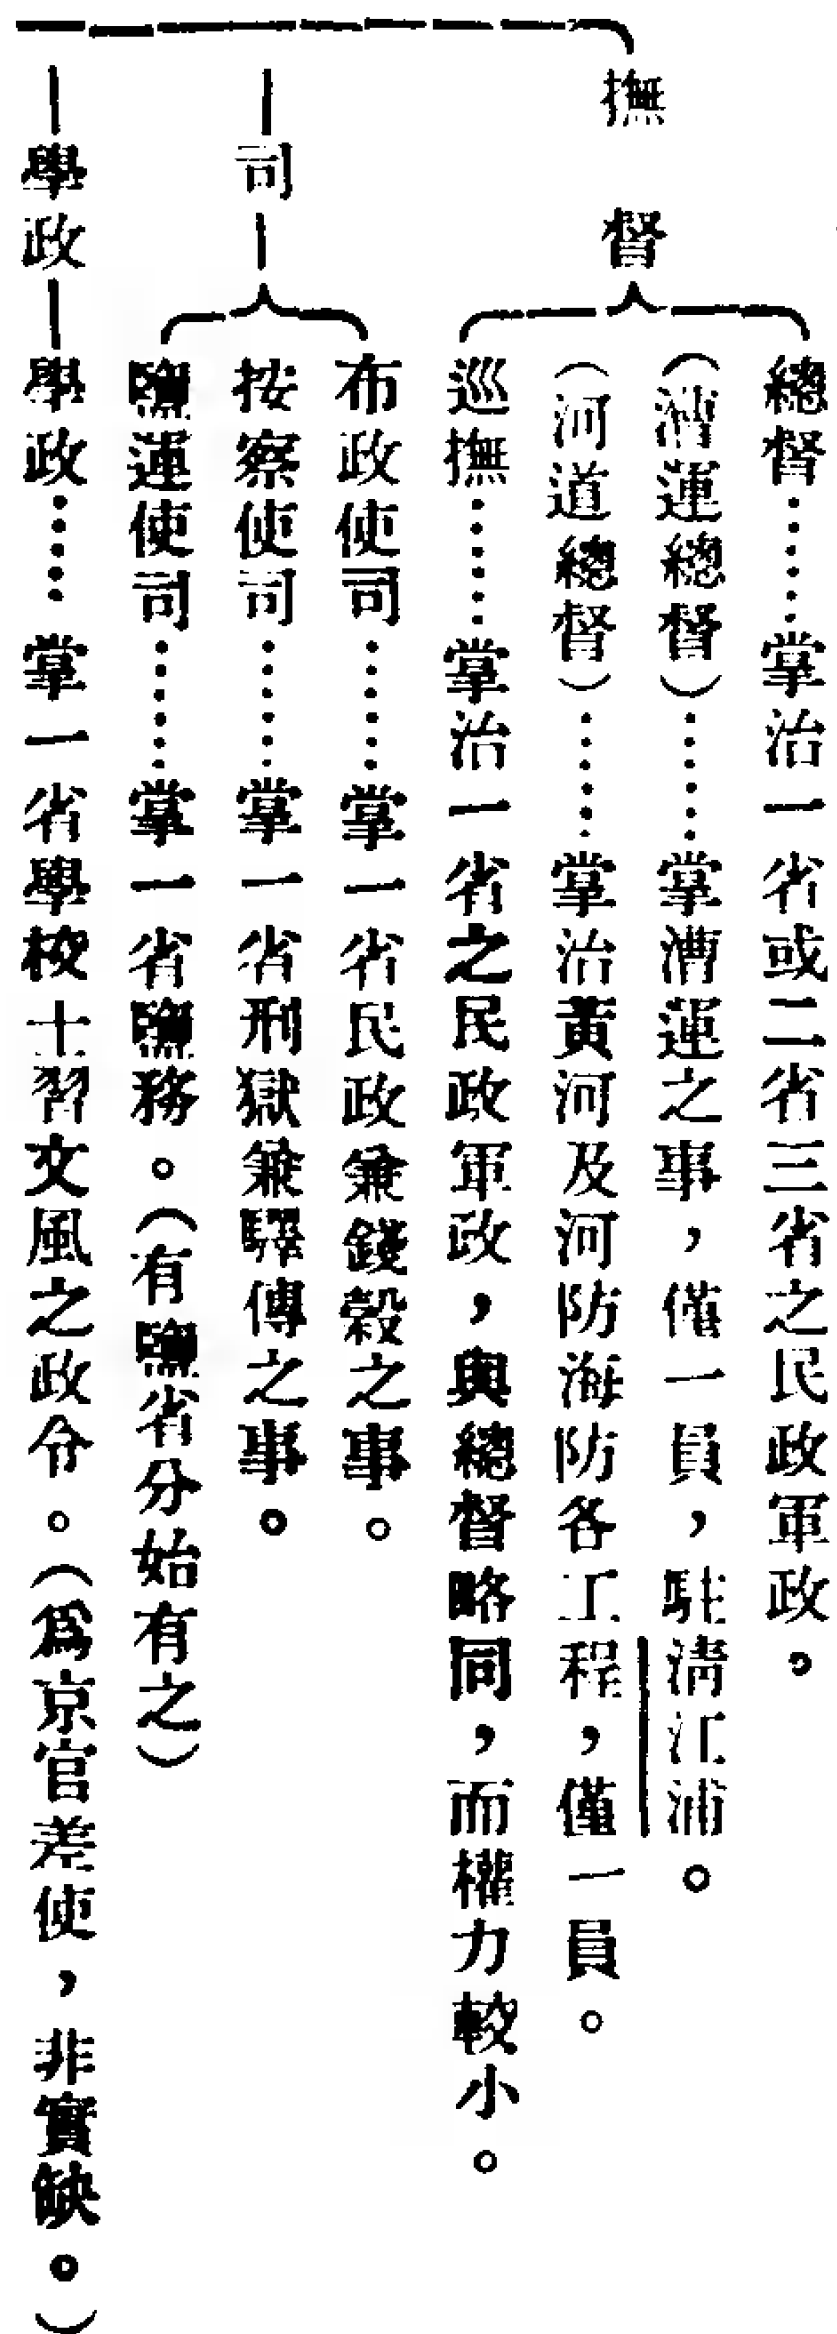 撫督
總督……掌治一省或二省三省之民政軍政。
(漕運總督)……掌漕運之事，僅一員，駐淸江浦。
(河道總督)……掌治黃河及河防海防各工程，僅一員。
巡撫……掌治一省之民政軍政，與總督略同，而權力較小。
司
布政使司……掌一省民政兼錢穀之事。
按察使司……掌一省刑獄兼驛傳之事。
鹽運使司……掌一省鹽務。(有鹽省分始有之)
學政
學政……掌一省學校士習文風之政令。(爲京官差使，非實缺。)